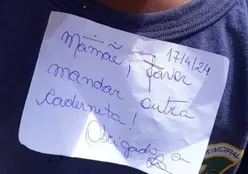 17/4/24
Mamãe, favor
mandar outra
caderneta!
Obrigado,